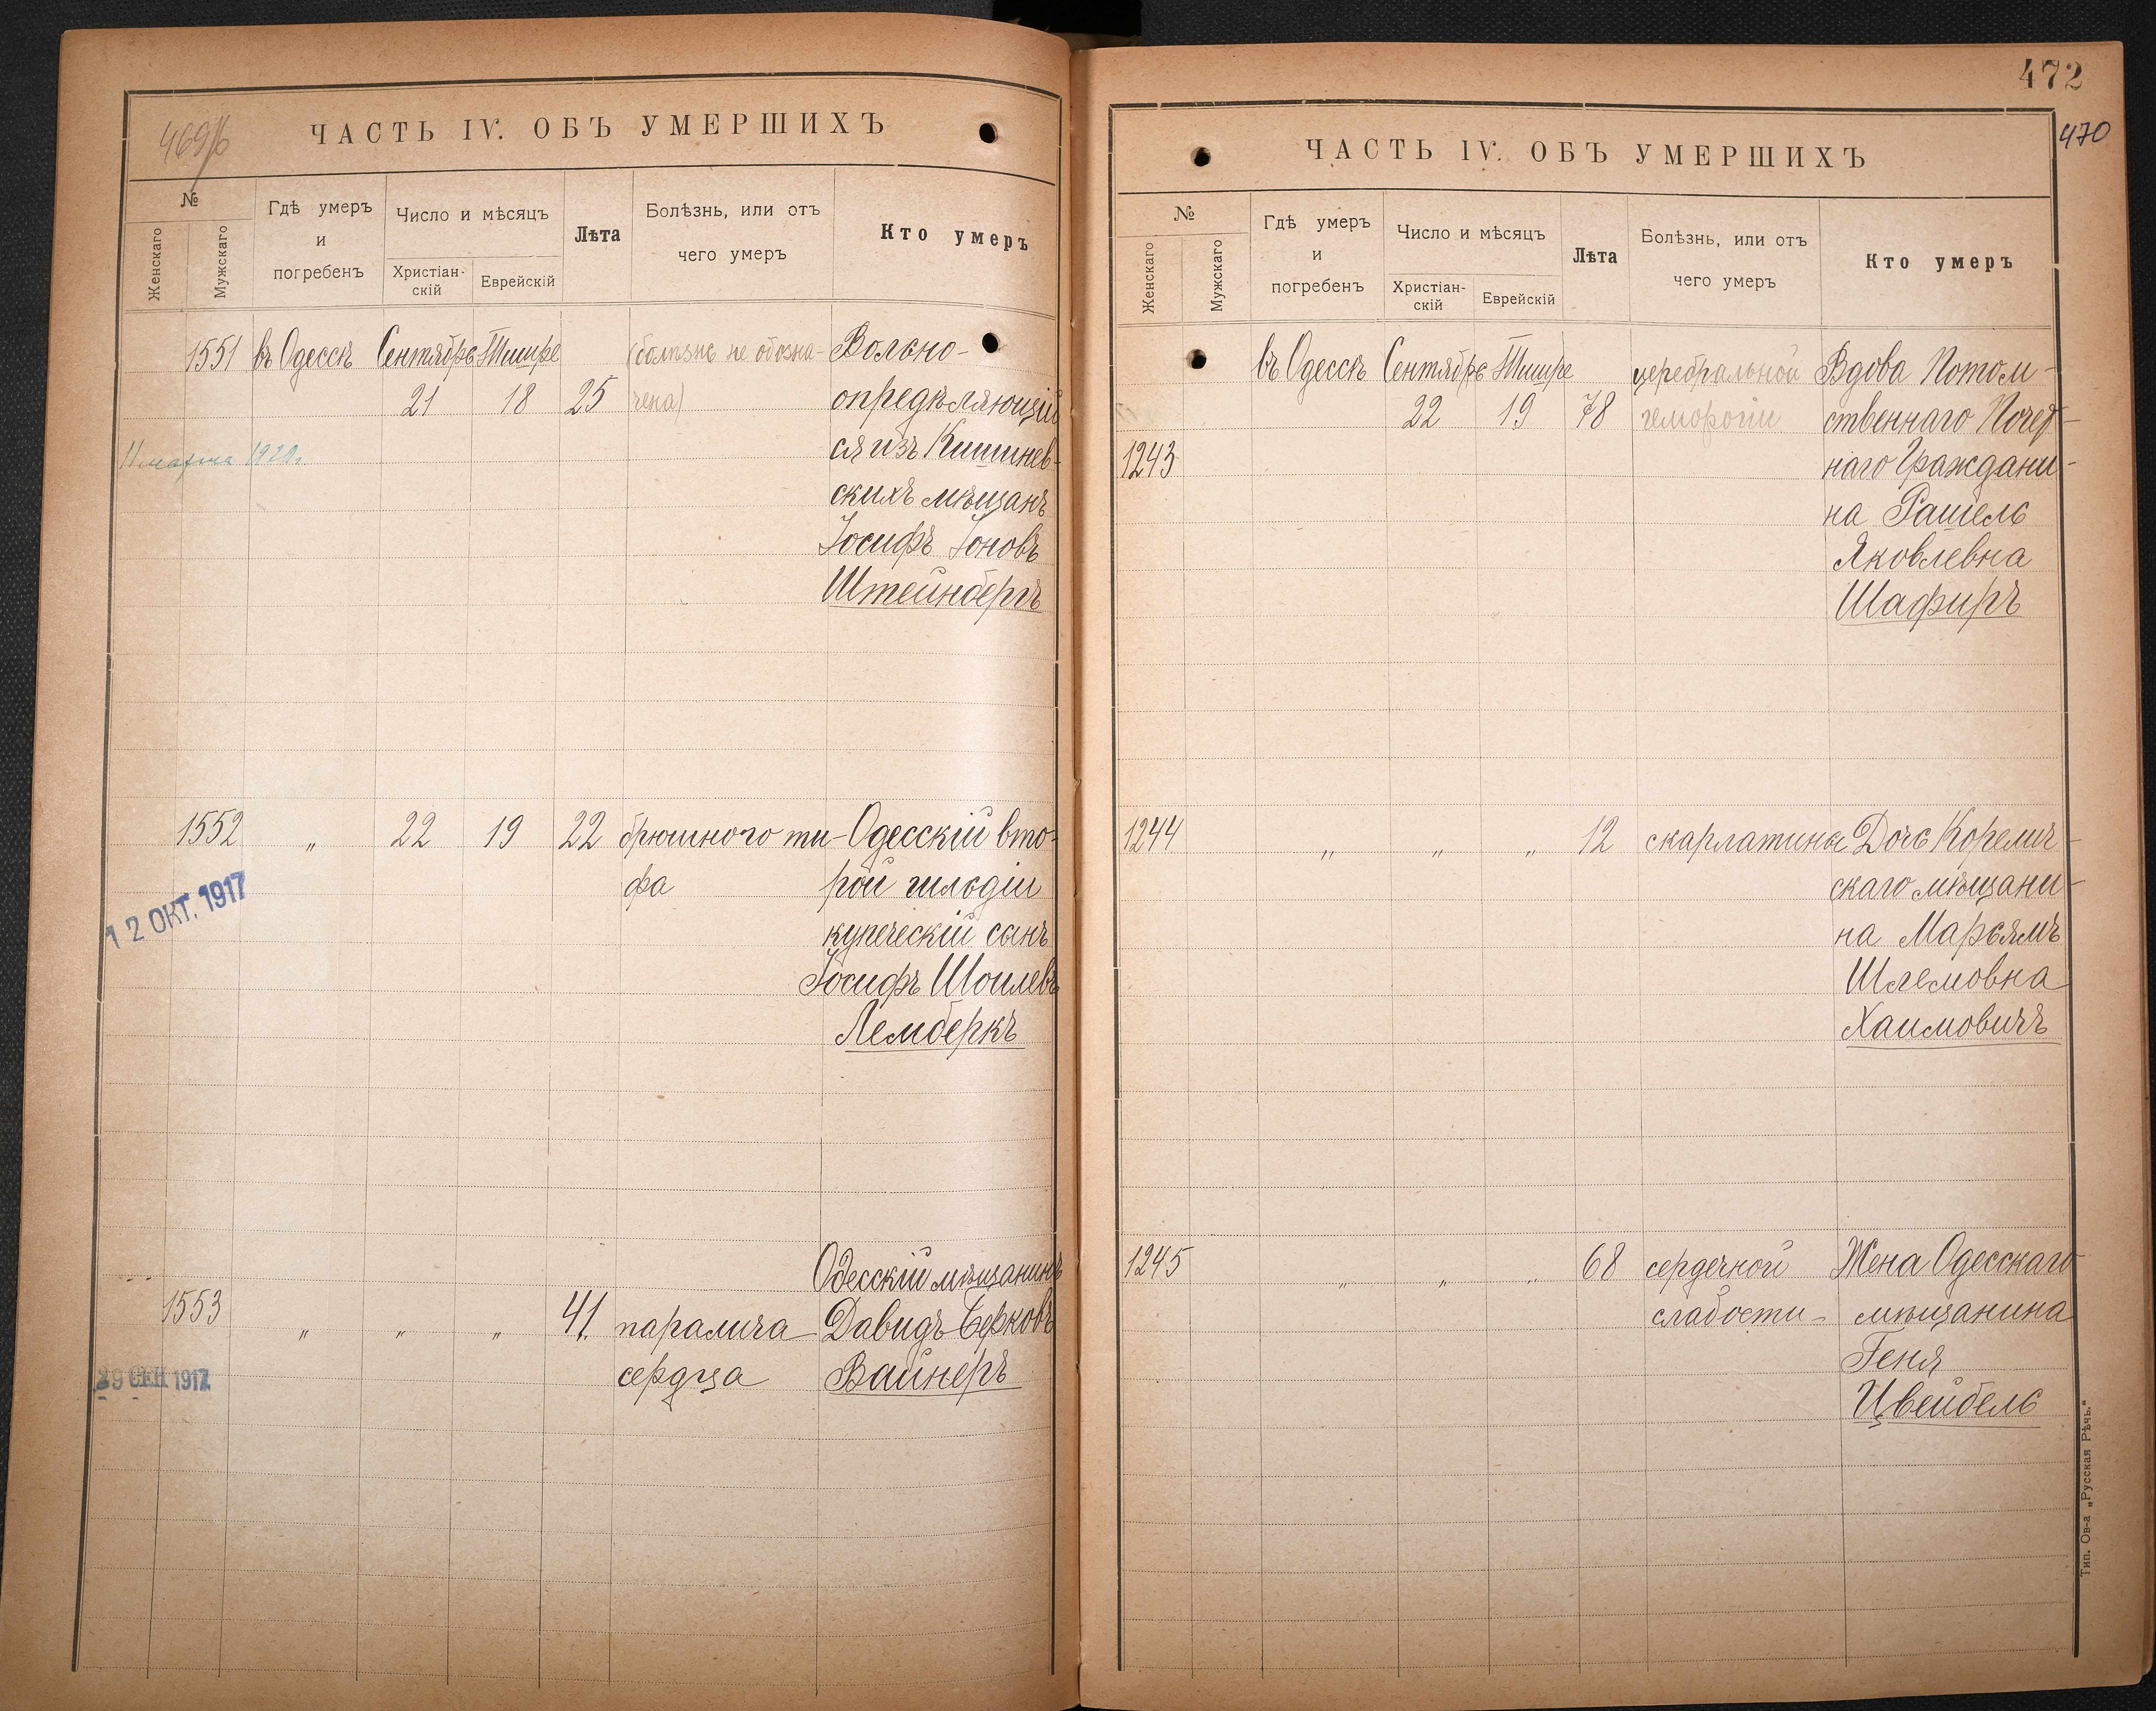 469/б
ЧАСТЬ IV. ОБЪ УМЕРШИХЪ
№
Женскаго
Мужскаго
Гдѣ умеръ
и
погребенъ
Число и мѣсяцъ
Христіан-
скій
Еврейскій
Лѣта
Болѣзнь, или отъ
чего умеръ
Кто умеръ
1551 въ Одессѣ Сентябрь Тишре (болѣзнь не обозна- Вольно-
21 18 25 чена) опредѣляющій
11 марта 1920 г.
ся изъ Кишинев-
скихъ мѣщанъ
Іосифъ Іоновъ
Штейнбергъ
1552 „ 22 19 22 брюшного ти- Одесскій вто-
фа рой гильдіи
12 ОКТ. 1917
купеческій сынъ
Іосифъ Шоилевъ
Лемберкъ
Одесскій мѣщанинъ
1553 „ „ „ 41 паралича Давидъ Берковъ
сердца Вайнеръ
29 СЕН 1917
472
470
ЧАСТЬ IV. ОБЪ УМЕРШИХЪ
№
Женскаго
Мужскаго
Гдѣ умеръ
и
погребенъ
Число и мѣсяцъ
Христіан-
скій
Еврейскій
Лѣта
Болѣзнь, или отъ
чего умеръ
Кто умеръ
въ Одессѣ Сентябрь Тишре церебральной Вдова Потом-
22 19 78 гемороги ственнаго Почет-
1243 наго Граждани-
на Рашель
Яковлевна
Шафиръ
1244 „ „ „ 12 скарлатины Дочь Корелич-
скаго мѣщани-
на Марьямъ
Шлемовна
Хаимовичъ
1245 „ „ „ 68 сердечной Жена Одесскаго
слабости- мѣщанина
Геня
Цвейбель
Тип. Ов-а „Русская Рѣчь.“